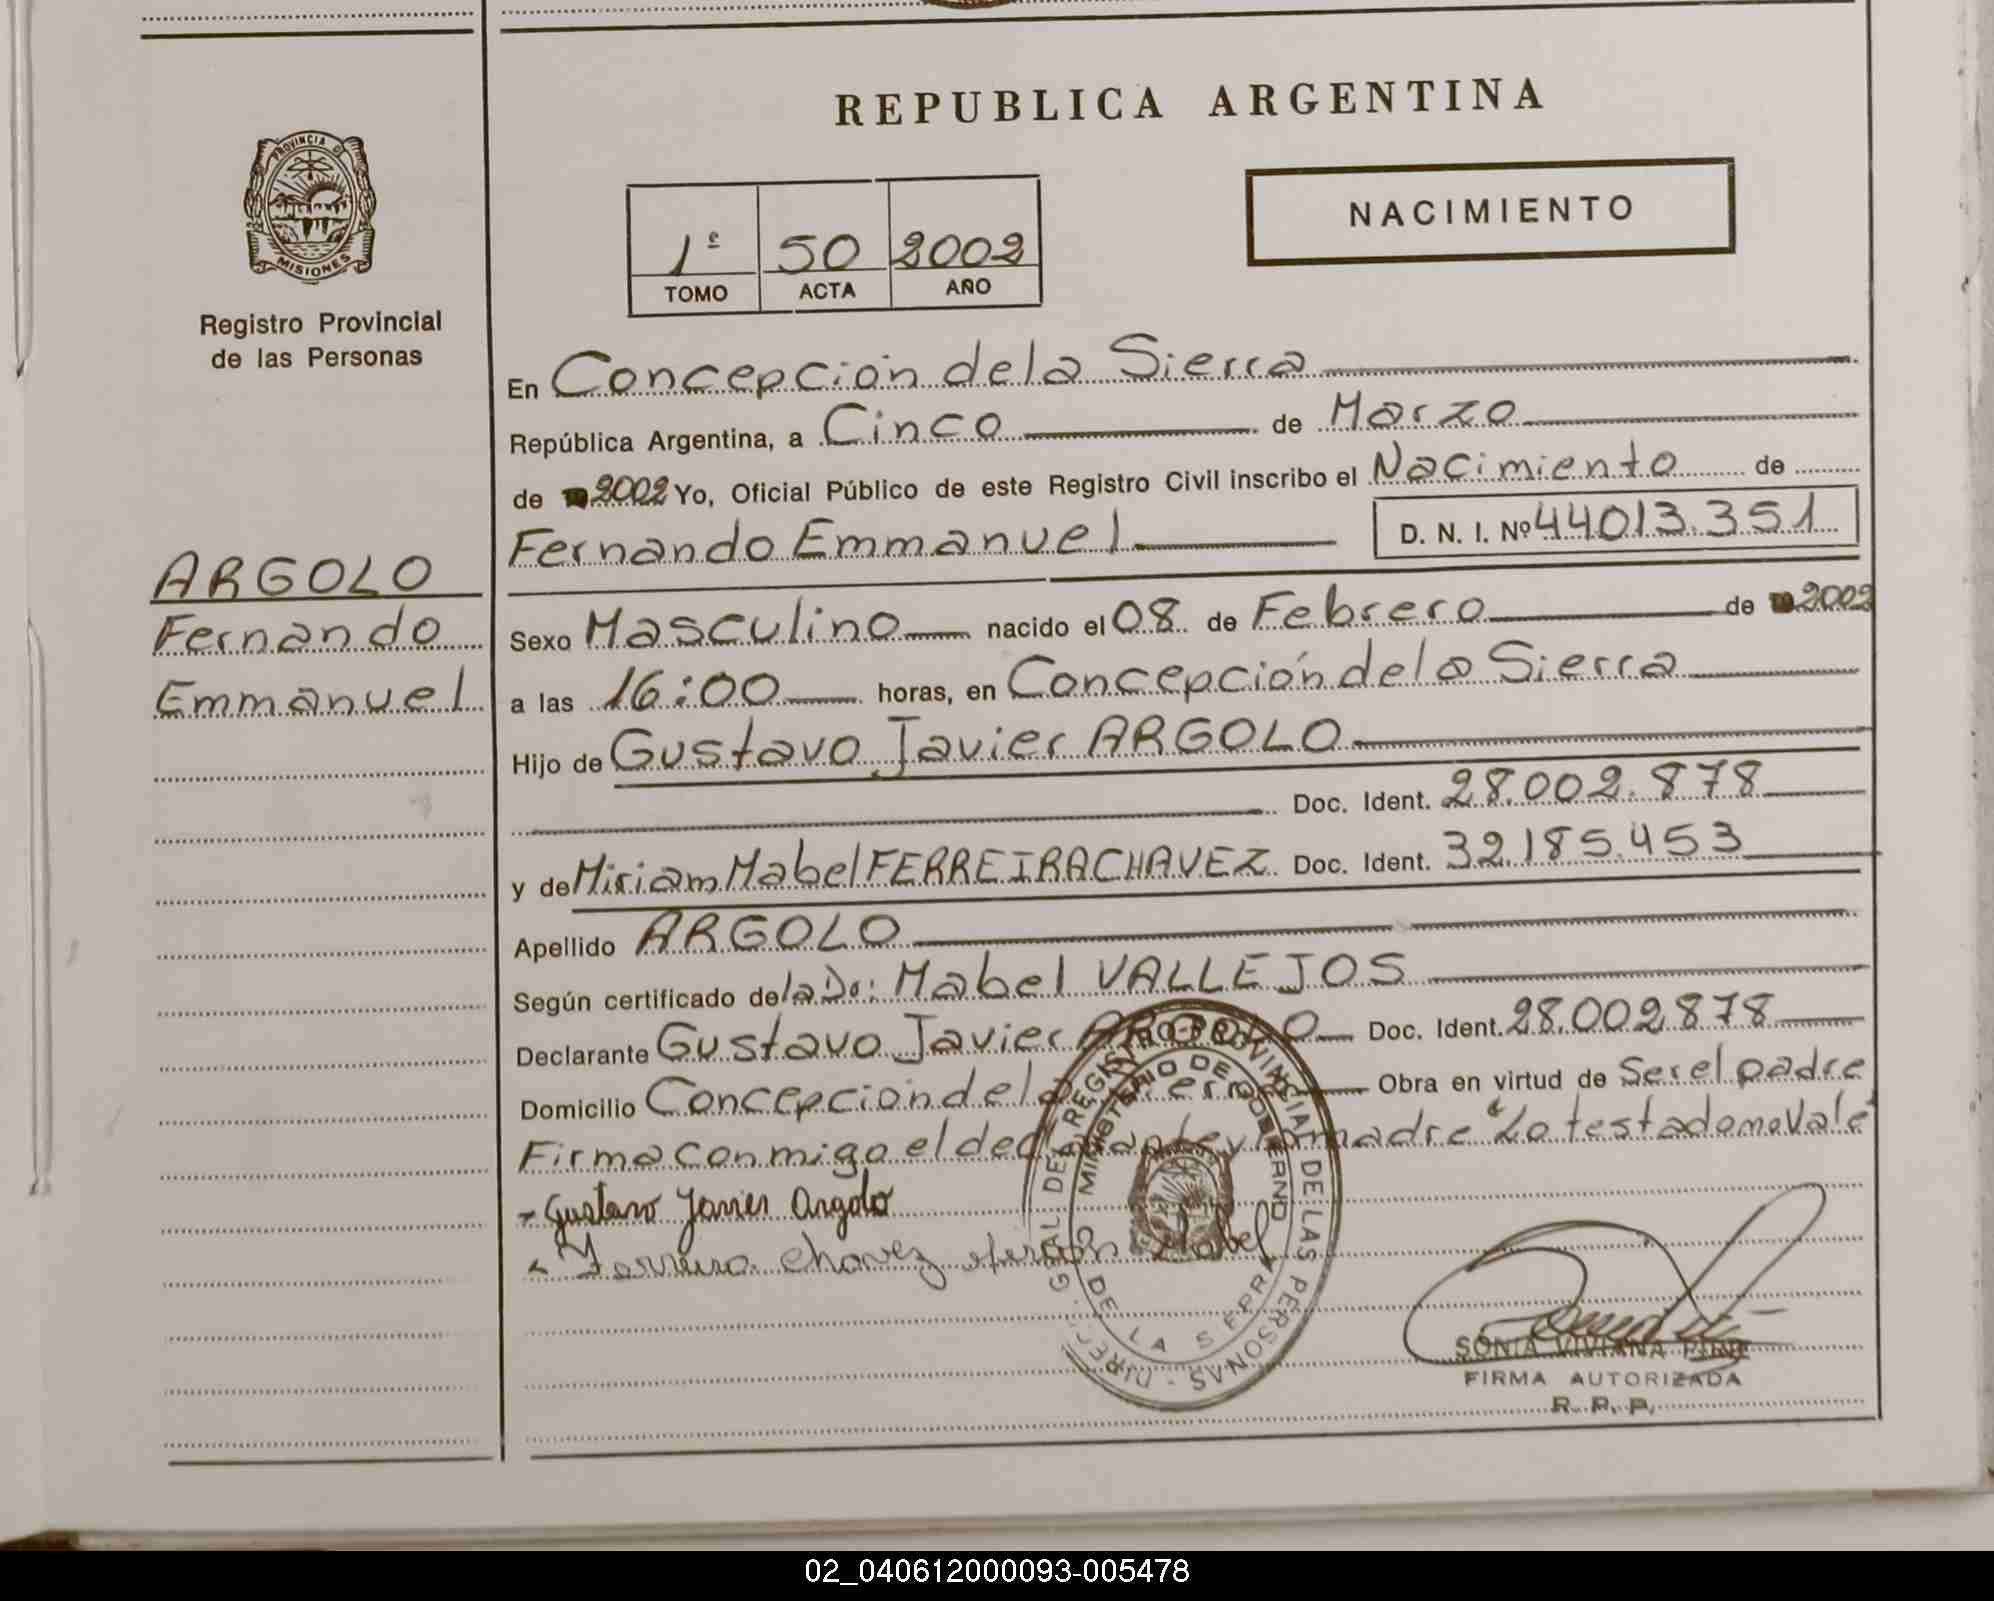 REPUBLICA ARGENTINA
PROVINCIA DE
MISIONES
Registro Provincial
de las Personas
NACIMIENTO
1º 50 2002
TOMO ACTA AÑO
En Concepción de la Sierra
República Argentina, a Cinco de Marzo
de 2002 Yo, Oficial Público de este Registro Civil inscribo el Nacimiento de
Fernando Emmanuel D. N. I. Nº 44013.351
ARGOLO
Fernando
Emmanuel
Sexo Masculino nacido el 08 de Febrero de 2002
a las 16:00 horas, en Concepción de la Sierra
Hijo de Gustavo Javier ARGOLO
Doc. Ident. 28.002.878
y de Miriam Mabel FERREIRA CHAVEZ Doc. Ident. 32.185.453
Apellido ARGOLO
Según certificado de la Dr: Mabel VALLEJOS
Declarante Gustavo Javier ARGOLO Doc. Ident. 28.002878
Domicilio Concepción de la Sierra Obra en virtud de Ser el padre
Firma conmigo el declarante y la madre "Lo testado no Vale"
- Gustavo Javier Argolo
- Ferreira Chavez Miriam Mabel
REGISTRO PROVINCIAL DE LAS PERSONAS
MINISTERIO DE GOBIERNO
DE LA SIERRA
SONIA VIVIANA
FIRMA AUTORIZADA
R. P. P.
02_040612000093-005478